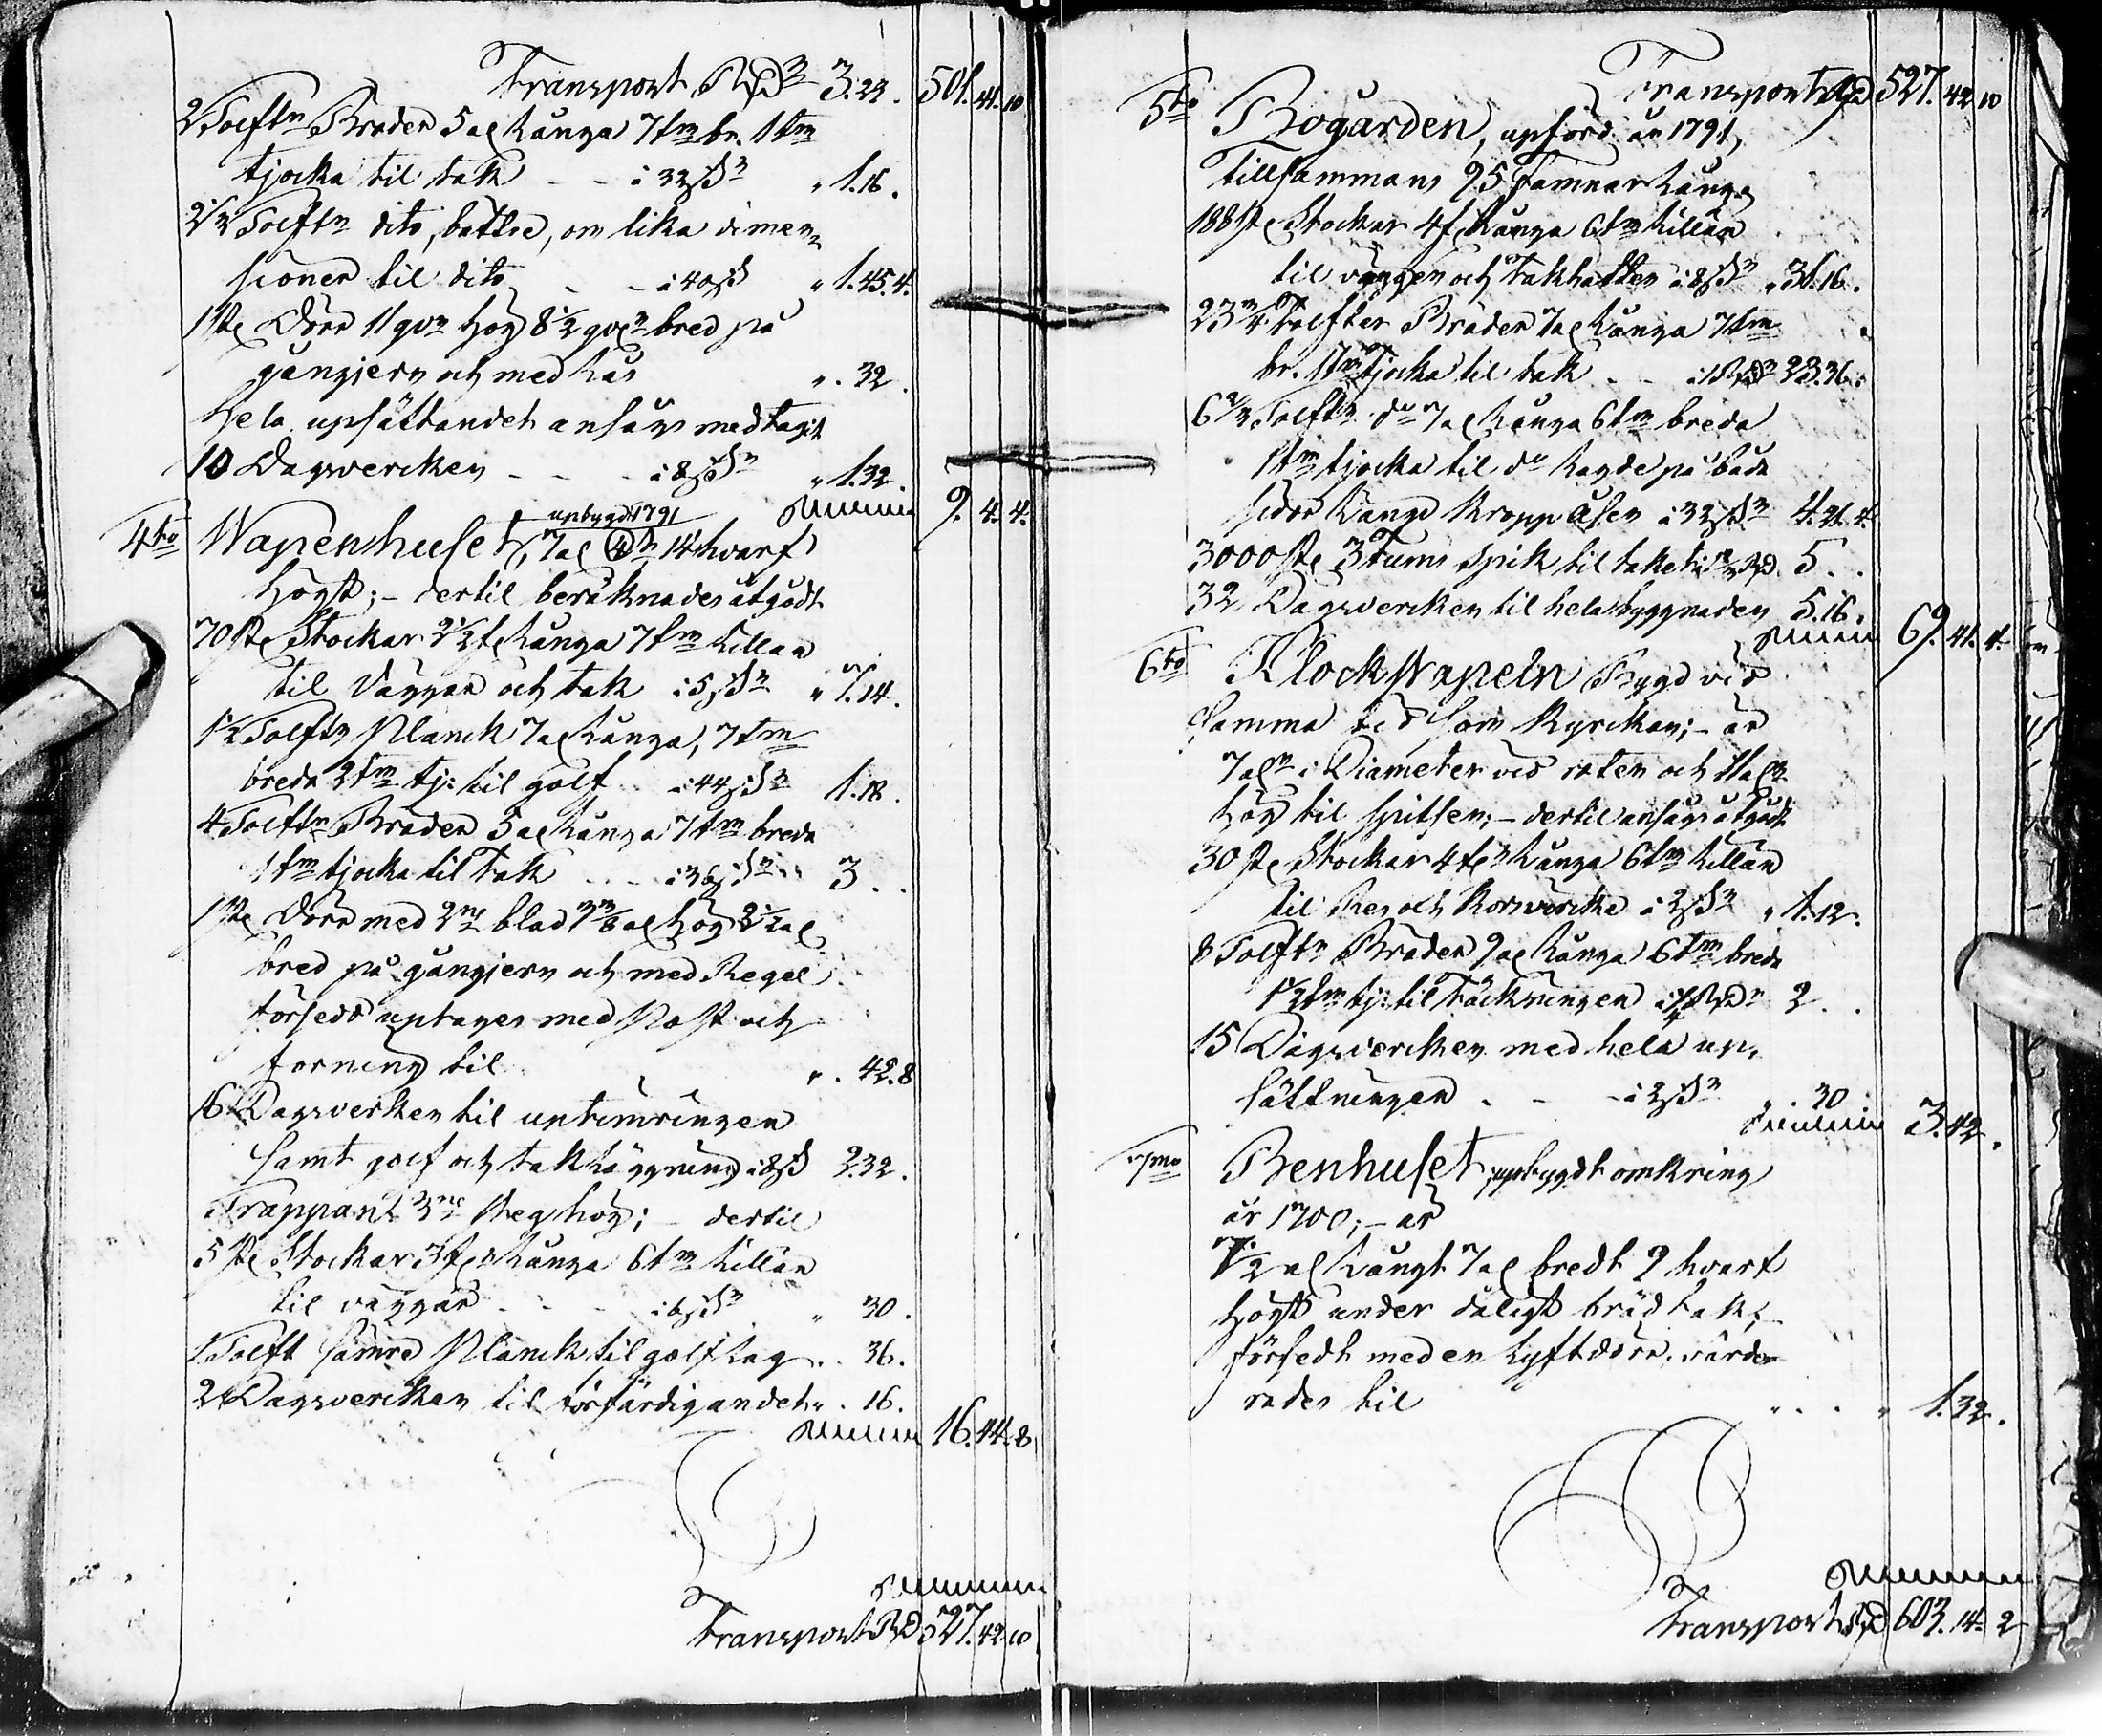 Transport Rd 3.24. 501.41.10
2 Tolftr Bräder 5 al långa 7 tm br. 1 tm
tjocka til tak - - i 32 sk " 1.16.
2 1/2 Tolftr dito, bättre, om lika dimen=
sioner til dito - - i 40 sk " 1.45.4.
1 st Dörr 11 qvr hög 8 1/2 qvr bred på
gångjern och med Lås ". 32.
Hela upsättandet ansågs medtagit
10 Dagsvercken - - - i 8 sk " 1.32.
Summa 9. 4. 4.
4to Wapenhuset, upbygdt 1791 7 al 14 hvarf
högt; - dertil beräknades åtgådt
70 st Stockar 2 1/2 f långa 7 tm lillän
til Väggar och tak i 5 sk " 7.14.
1 1/2 Tolftr Planck 7 al långa, 7 tm
breda 2 tm tj: til golf i 44 sk 1.18.
4 Tolftr Bräder 5 al långa 7 tm breda
1 tm tjocka til Tak - - i 36 sk 3..
1 st Dörr med 2ne blad al hög 2 1/2 al
bred på gångjern och med Regel
försedd uptages med Påst och
forning til ". 42.8
16 Dagsverken til uptimringen
samt golf och takläggning i 8 sk 2.32.
Trappan 3ne steg hög; - dertil
5 st Stockar 3 f långa 6 tm lillän
til väggar - - - i 6 sk " 30.
1 Tolft sämre Planck til golflag.. 36.
2 Dagsvercken til förfärdigandet ". 16.
Summa 16.44.8
Summa
Transport Rd 527.42.10
Transport Rd 527.42.10
5to Bogården, upförd år 1791,
Tillsammans 95 Famnar långa
188 st Stockar 4 f långa 6 tm lillän
til väggen och Takhatten i 8 sk " 31.16.
23 3/4 Tolfter Bräder 7 al långa 7 tm
br. 1 tm tjocka til tak - - i 1 Rd 23.36.
6 1/2 Tolftr do 7 al långa 6 tm breda
1 tm tjocka til do lagde på båda
sidor längs Kroppåsen i 32 sk 4.21.4.
3000 st 3 Tums spik til taket 5..
32 Dagsvercken til hela byggnaden 5.16.
Summa 69.41.4.
6to Klockstapeln Bygd vid
samma tid som Kyrckan; - är
7 aln i Diameter vid roten och aln
hög til spitsen; - dertil ansågs åtgådt
30 st Stockar 4 f långa 6 tm lillän
til Res och Korsvircke i 2 sk " 1.12.
8 Tolftr Bräder 9 al långa 6 tm breda
1 1/2 tm tj: til Täckningen 2..
15 Dagsvercken med hela up=
sättningen - - - i 2 sk " . 30
Summa 3.42.
7mo Benhuset upbygdt omkring
år 1700; - är
7 1/2 al långt 7 al bredt 9 hvarf
högt under dåligt brädtak,
försedt med en lyftdörr, värde=
rades til " . . . " 1.32.
Summa
Transport Rd 603.14.2